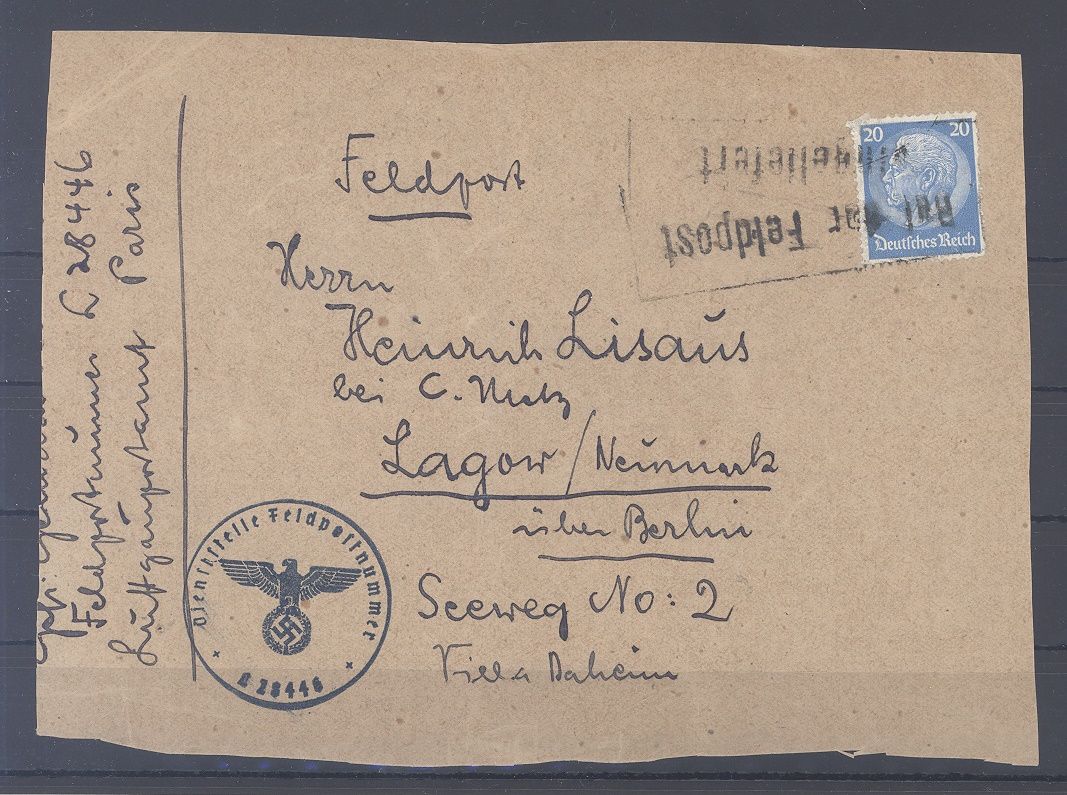 Feldpost
Herrn
Heinrich Lisaus
bei C. Metz
Lagow/Neumark
über Berlin
Seeweg No: 2
Villa Daheim
20 20
Deutsches Reich
Bei der Feldpost
eingeliefert
Dienststelle Feldpostnummer
L 28446
Feldpostnummer L 28446
Luftgaupostamt Paris